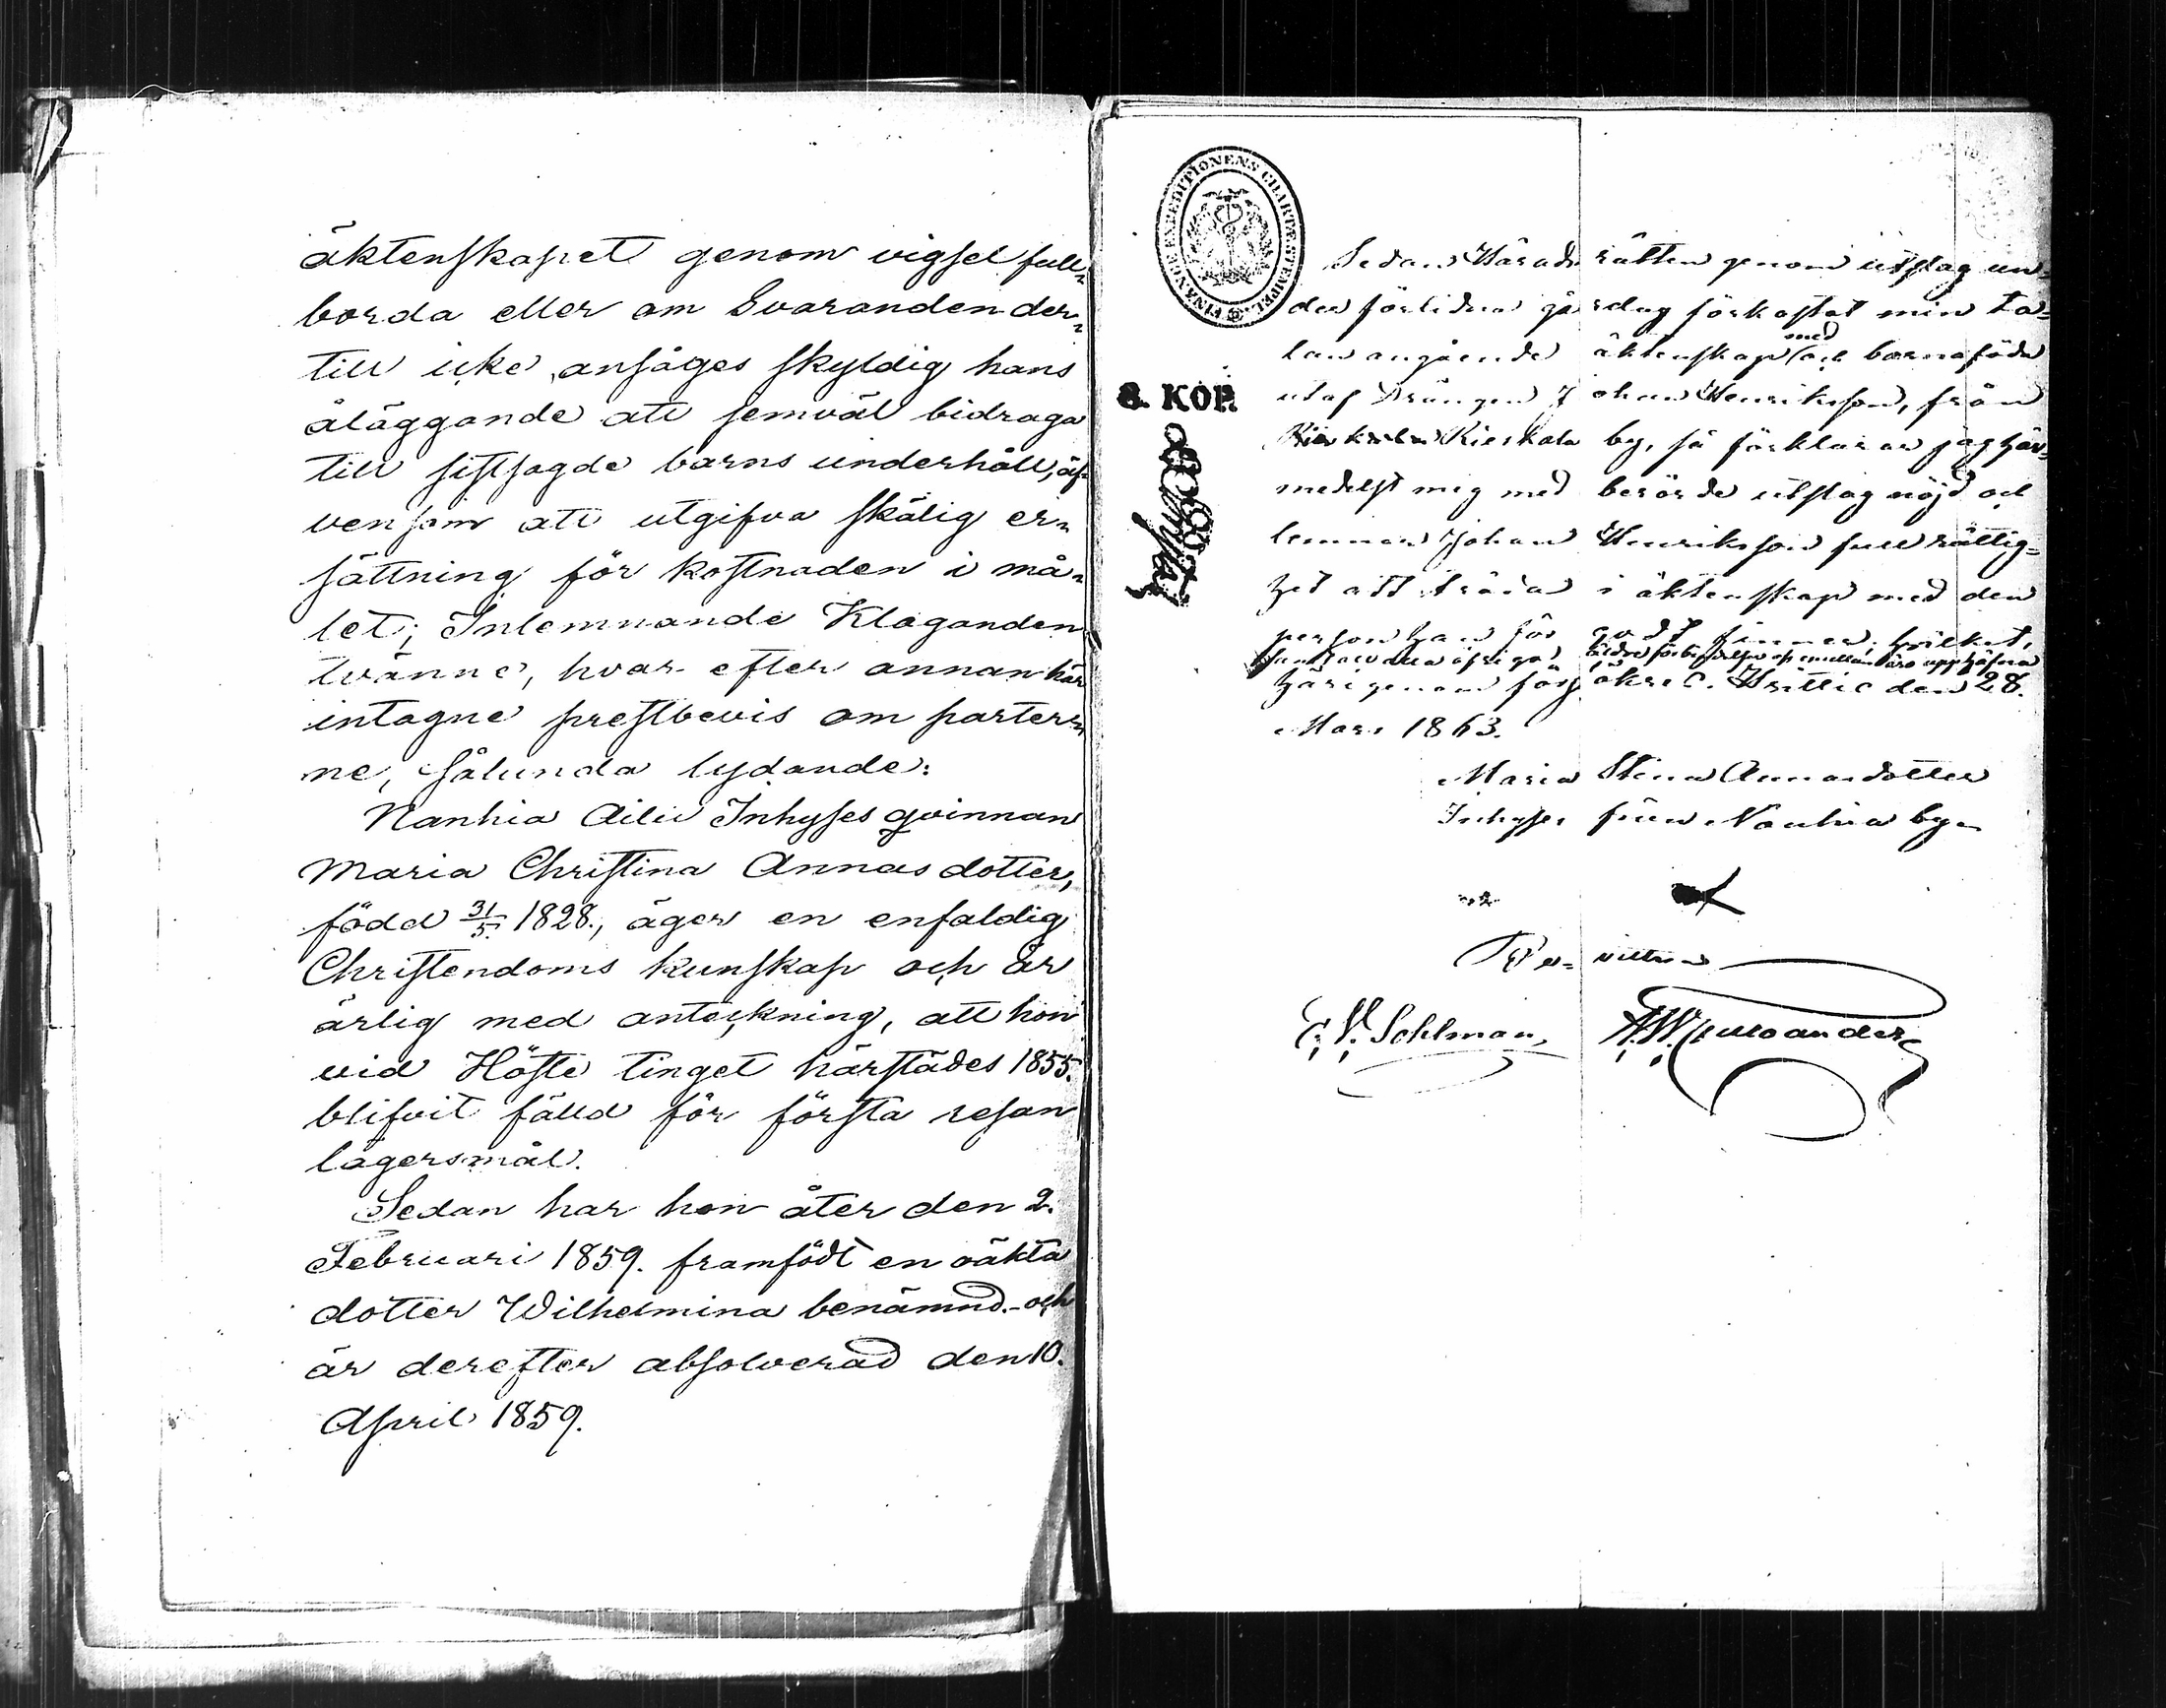 äktenskapet genom vigsel full-
borda eller om Svaranden der-
till icke anséges skyldig hans
åläggande att jemväl bidraga
till sistsagde barns underhåll, äf-
vensom att utgifva skälig er-
sättning för kostnaden i må-
let; Inlemnande Kläganden
tvänne, hvar efter annan här
intagne prestbevis om parter-
ne, sålunda lydande:
Nanhia Inhyses qvinnan
Maria Christina Annasdotter,
född 31/5. 1828., äger en enfaldig
Christendoms kunskap och är
ärlig med anteckning, att hon
vid Höste tinget härstädes 1855.
blifvit fälld för första resan
lägersmål.
Sedan har hon åter den 2.
Februari 1859. framfödt en oäkta
dotter Wilhelmina benämnd.- och
är derefter absolverad den 10.
April 1859.
FINANCE EXPEDITIONENS CHARTÆ STEMPEL
8. KOP.
Sedan Härads rätten genom utslag un-
der förlidna gårdag förkastat min ta-
lan angående äktenskap med och barnaföda
utaf Drängen Johan Henriksson, från
Rieskala by, så förklarar jag här-
medelst mig med berörde utslag nöjd och
lemnar Johan Henriksson full rättig-
het att träda i äktenskap med den
person han för godt finner, hvilket,
äro upphäfna
härigenom försäkras. den 28.
Mars 1863.
Maria Stina Annasdotter
Inhyses från Nanhia by
Bevittna
E. V. Sohlman,